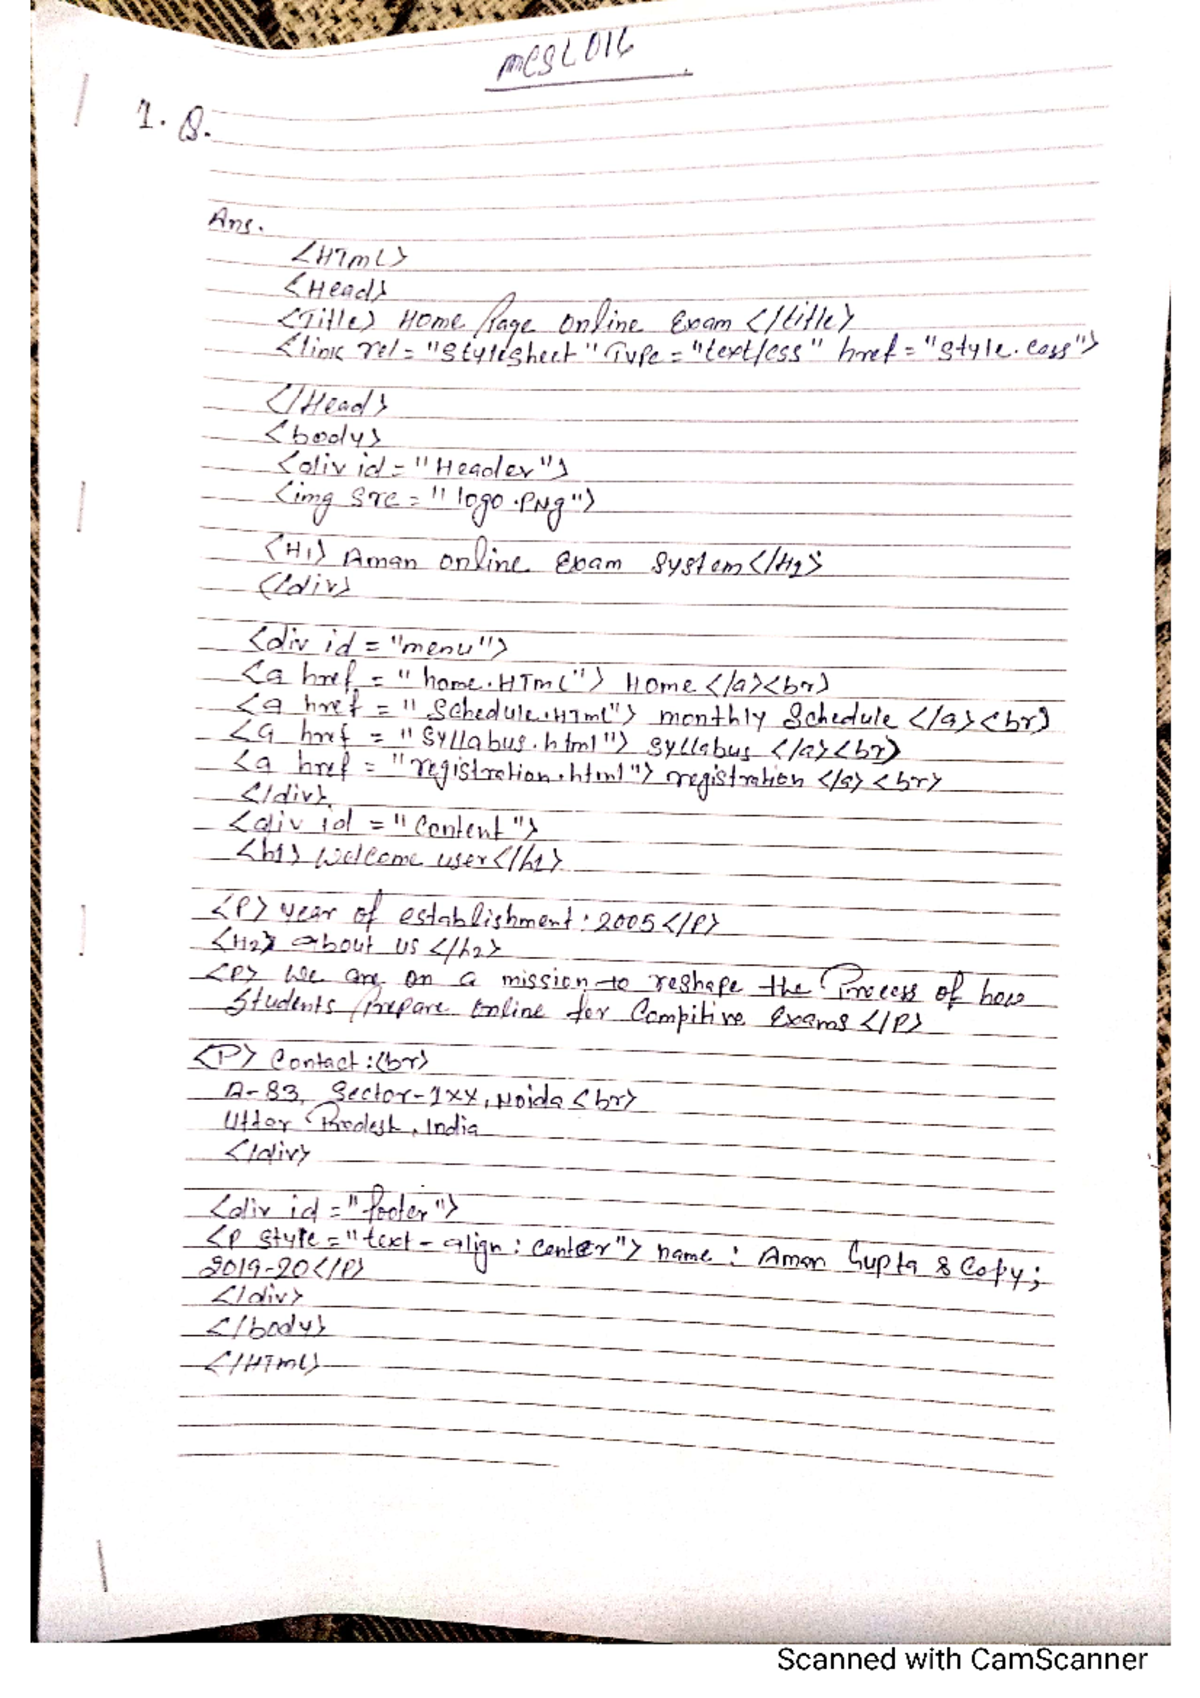 MCSL016
1. Q.
Ans.
<HTML>
<Head>
<Title> Home Page Online Exam </title>
<link rel = "Stylesheet" Type = "text/css" href = "style.css">
</Head>
<body>
<div id = "Header">
<img src = "logo.PNG">
<H1> Aman Online Exam System </H2>
</div>
<div id = "menu">
<a href = "home.HTML"> Home </a><br>
<a href = "Schedule.HTML"> monthly Schedule </a><br>
<a href = "Syllabus.html"> Syllabus </a><br>
<a href = "registration.html"> registration </a><br>
</div>
<div id = "Content">
<h1> Welcome user </h1>
<P> year of establishment : 2005 </P>
<H2> about us </h2>
<P> We are on a mission to reshape the Process of how
Students Prepare Online for Compitive Exams </P>
<P> Contact : <br>
A-83, Sector-1xx, Noida <br>
Uttar Pradesh, India
</div>
<div id = "footer">
<P style = "text-align : center"> name : Aman Gupta & Copy;
2019-20 </P>
</div>
</body>
</HTML>
Scanned with CamScanner